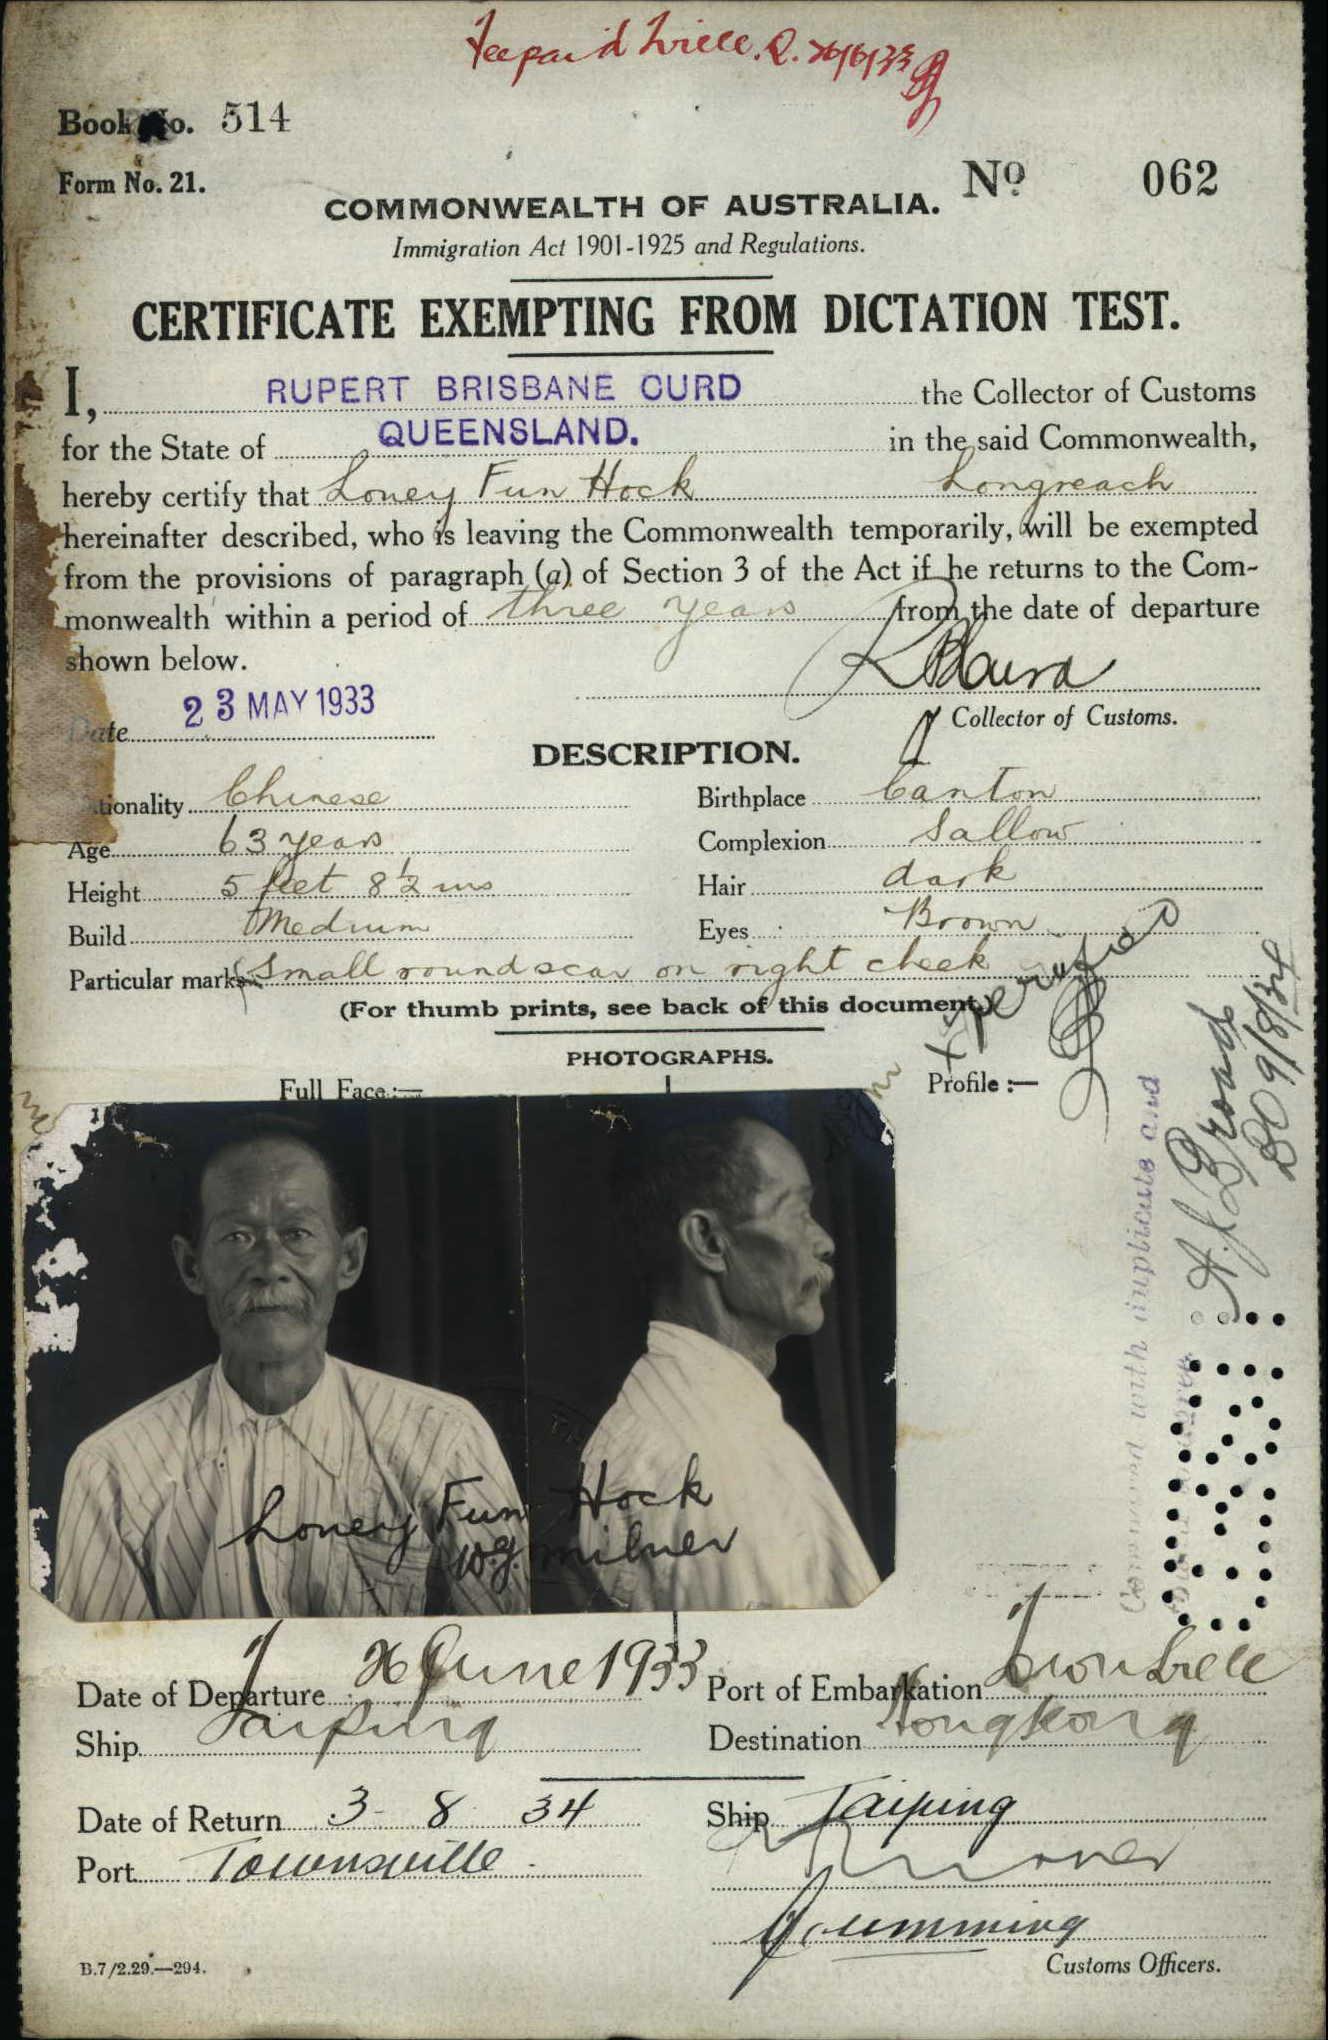 Feepaid Tville. Q. 26/6/33
Book No. 514
Form No. 21.
No 062
COMMONWEALTH OF AUSTRALIA.
Immigration Act 1901-1925 and Regulations.
CERTIFICATE EXEMPTING FROM DICTATION TEST.
I, RUPERT BRISBANE CURD the Collector of Customs
for the State of QUEENSLAND. in the said Commonwealth,
hereby certify that Loney Fun Hock Longreach
hereinafter described, who is leaving the Commonwealth temporarily, will be exempted
from the provisions of paragraph (a) of Section 3 of the Act if he returns to the Com-
monwealth within a period of three years from the date of departure
shown below.
Date 23 MAY 1933
Collector of Customs.
DESCRIPTION.
Nationality Chinese Birthplace Canton
Age 63 years Complexion Sallow
Height 5 feet 8½ ins Hair dark
Build Medium Eyes Brown
Particular marks Small round scar on right cheek
(For thumb prints, see back of this document.)
PHOTOGRAPHS.
Full Face:— Profile:—
and
A. J. Broad
9/8/34
Loney Fun Hock
W.G. Milner
Date of Departure 26 June 1933 Port of Embarkation Townsville
Ship Taiping Destination Hongkong
Date of Return 3-8-34 Ship Taiping
Port Townsville
Cumming
B.7/2.29.—294. Customs Officers.